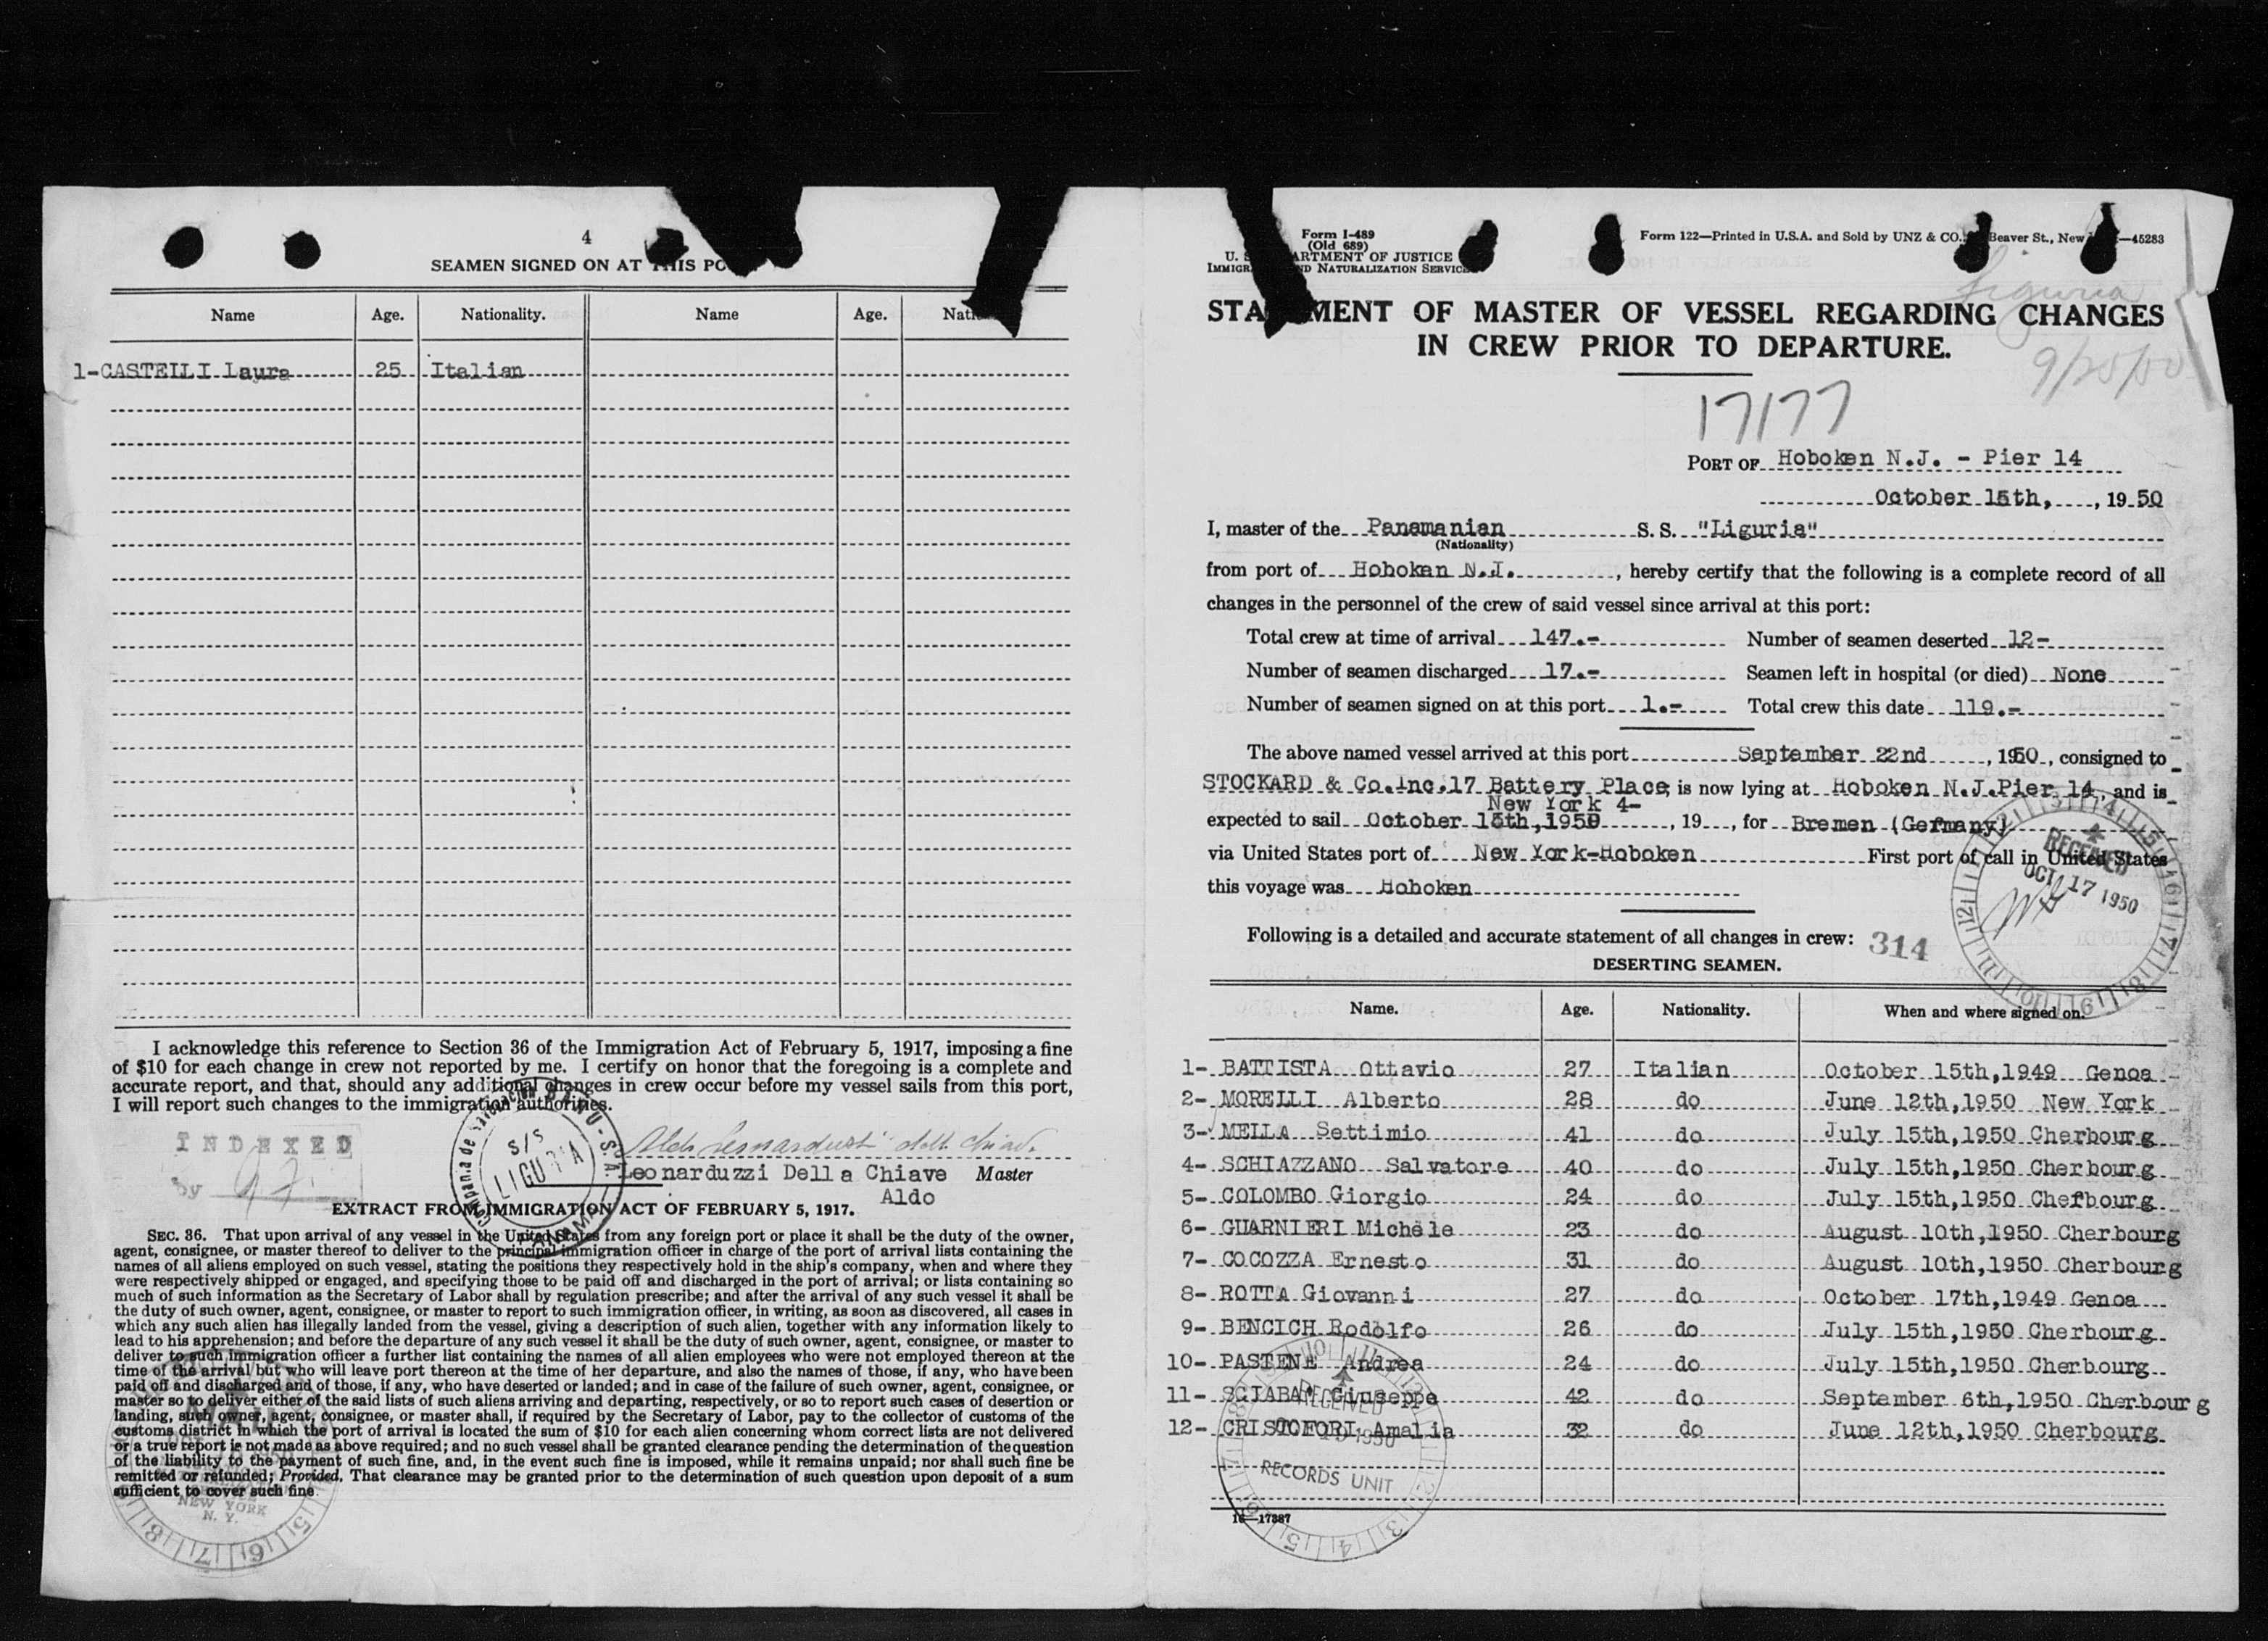 4
SEAMEN SIGNED ON AT THIS PO
Name Age. Nationality. Name Age. Nati
1-CASTELLI Laura 25 Italian
I acknowledge this reference to Section 36 of the Immigration Act of February 5, 1917, imposing a fine
of $10 for each change in crew not reported by me. I certify on honor that the foregoing is a complete and
accurate report, and that, should any additional changes in crew occur before my vessel sails from this port,
I will report such changes to the immigration authorities.
INDEXED
by
S/S
LIGURIA
Leonarduzzi Della Chiave Master
Aldo
EXTRACT FROM IMMIGRATION ACT OF FEBRUARY 5, 1917.
SEC. 36. That upon arrival of any vessel in the United States from any foreign port or place it shall be the duty of the owner,
agent, consignee, or master thereof to deliver to the principal immigration officer in charge of the port of arrival lists containing the
names of all aliens employed on such vessel, stating the positions they respectively hold in the ship's company, when and where they
were respectively shipped or engaged, and specifying those to be paid off and discharged in the port of arrival; or lists containing so
much of such information as the Secretary of Labor shall by regulation prescribe; and after the arrival of any such vessel it shall be
the duty of such owner, agent, consignee, or master to report to such immigration officer, in writing, as soon as discovered, all cases in
which any such alien has illegally landed from the vessel, giving a description of such alien, together with any information likely to
lead to his apprehension; and before the departure of any such vessel it shall be the duty of such owner, agent, consignee, or master to
deliver to such immigration officer a further list containing the names of all alien employees who were not employed thereon at the
time of the arrival but who will leave port thereon at the time of her departure, and also the names of those, if any, who have been
paid off and discharged and of those, if any, who have deserted or landed; and in case of the failure of such owner, agent, consignee, or
master so to deliver either of the said lists of such aliens arriving and departing, respectively, or so to report such cases of desertion or
landing, such owner, agent, consignee, or master shall, if required by the Secretary of Labor, pay to the collector of customs of the
customs district in which the port of arrival is located the sum of $10 for each alien concerning whom correct lists are not delivered
or a true report is not made as above required; and no such vessel shall be granted clearance pending the determination of the question
of the liability to the payment of such fine, and, in the event such fine is imposed, while it remains unpaid; nor shall such fine be
remitted or refunded; Provided, That clearance may be granted prior to the determination of such question upon deposit of a sum
sufficient to cover such fine.
MAIL
NEW YORK
N. Y.
Form I-489
(Old 689)
U. S. DEPARTMENT OF JUSTICE
IMMIGRATION AND NATURALIZATION SERVICE
Form 122—Printed in U.S.A. and Sold by UNZ & CO., Beaver St., New —45283
Liguria
STATEMENT OF MASTER OF VESSEL REGARDING CHANGES
IN CREW PRIOR TO DEPARTURE.
17177
PORT OF Hoboken N.J. - Pier 14
October 15th, , 19 50
I, master of the Panamanian S. S. "Liguria"
(Nationality)
from port of Hoboken N.J. , hereby certify that the following is a complete record of all
changes in the personnel of the crew of said vessel since arrival at this port:
Total crew at time of arrival 147.- Number of seamen deserted 12-
Number of seamen discharged 17.- Seamen left in hospital (or died) None
Number of seamen signed on at this port 1.- Total crew this date 119.-
The above named vessel arrived at this port September 22nd , 1950 , consigned to
STOCKARD & Co.Inc.17 Battery Place, is now lying at Hoboken N.J.Pier 14 , and is
New York 4-
expected to sail October 15th,1950 , 19 , for Bremen (Germany)
via United States port of New York-Hoboken First port of call in United States
this voyage was Hoboken
RECEIVED
OCT 17 1950
Following is a detailed and accurate statement of all changes in crew: 314
DESERTING SEAMEN.
Name. Age. Nationality. When and where signed on.
1- BATTISTA Ottavio 27 Italian October 15th,1949 Genoa
2- MORELLI Alberto 28 do June 12th,1950 New York
3- MELLA Settimio 41 do July 15th,1950 Cherbourg
4- SCHIAZZANO Salvatore 40 do July 15th,1950 Cherbourg
5- COLOMBO Giorgio 24 do July 15th,1950 Cherbourg
6- GUARNIERI Michele 23 do August 10th,1950 Cherbourg
7- COCOZZA Ernesto 31 do August 10th,1950 Cherbourg
8- ROTTA Giovanni 27 do October 17th,1949 Genoa
9- BENCICH Rodolfo 26 do July 15th,1950 Cherbourg
10- PASTENE Andrea 24 do July 15th,1950 Cherbourg
11- SCIABA' Giuseppe 42 do September 6th,1950 Cherbourg
12- CRISTOFORI Amalia 32 do June 12th,1950 Cherbourg
RECEIVED
RECORDS UNIT
16—17387